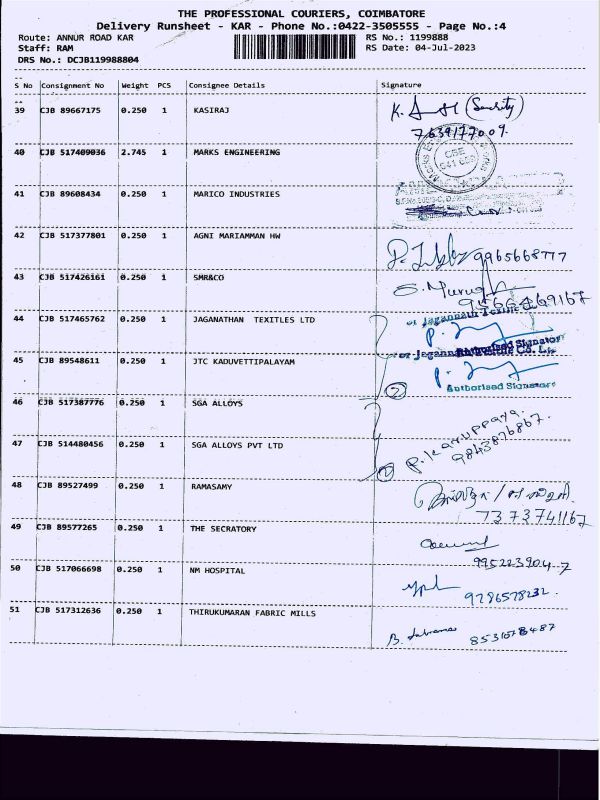 THE PROFESSIONAL COURIERS, COIMBATORE
Delivery Runsheet - KAR - Phone No.:0422-3505555 - Page No.:4
Route: ANNUR ROAD KAR RS No.: 1199888
Staff: RAM RS Date: 04-Jul-2023
DRS No.: DCJB119988804
S No Consignment No Weight PCS Consignee Details Signature
39 CJB 89667175 0.250 1 KASIRAJ K. (Security)
7639177009.
40 CJB 517409036 2.745 1 MARKS ENGINEERING
CBE
641 659
41 CJB 89608434 0.250 1 MARICO INDUSTRIES
42 CJB 517377801 0.250 1 AGNI MARIAMMAN HW 9965668777
43 CJB 517426161 0.250 1 SMR&CO S. Muruga
9566469167
44 CJB 517465762 0.250 1 JAGANATHAN TEXITLES LTD
or Jagannath Textile
Authorised Signator
45 CJB 89548611 0.250 1 JTC KADUVETTIPALAYAM
or Jagannath Textile Co. Lt
Authorised Signator
2
46 CJB 517387776 0.250 1 SGA ALLOYS
P. Karuppaya.
9843876867.
47 CJB 514480456 0.250 1 SGA ALLOYS PVT LTD
2
48 CJB 89527499 0.250 1 RAMASAMY
7373741167
49 CJB 89577265 0.250 1 THE SECRATORY
9952239047
50 CJB 517066698 0.250 1 NM HOSPITAL
9786578232.
51 CJB 517312636 0.250 1 THIRUKUMARAN FABRIC MILLS
B. 8531078487